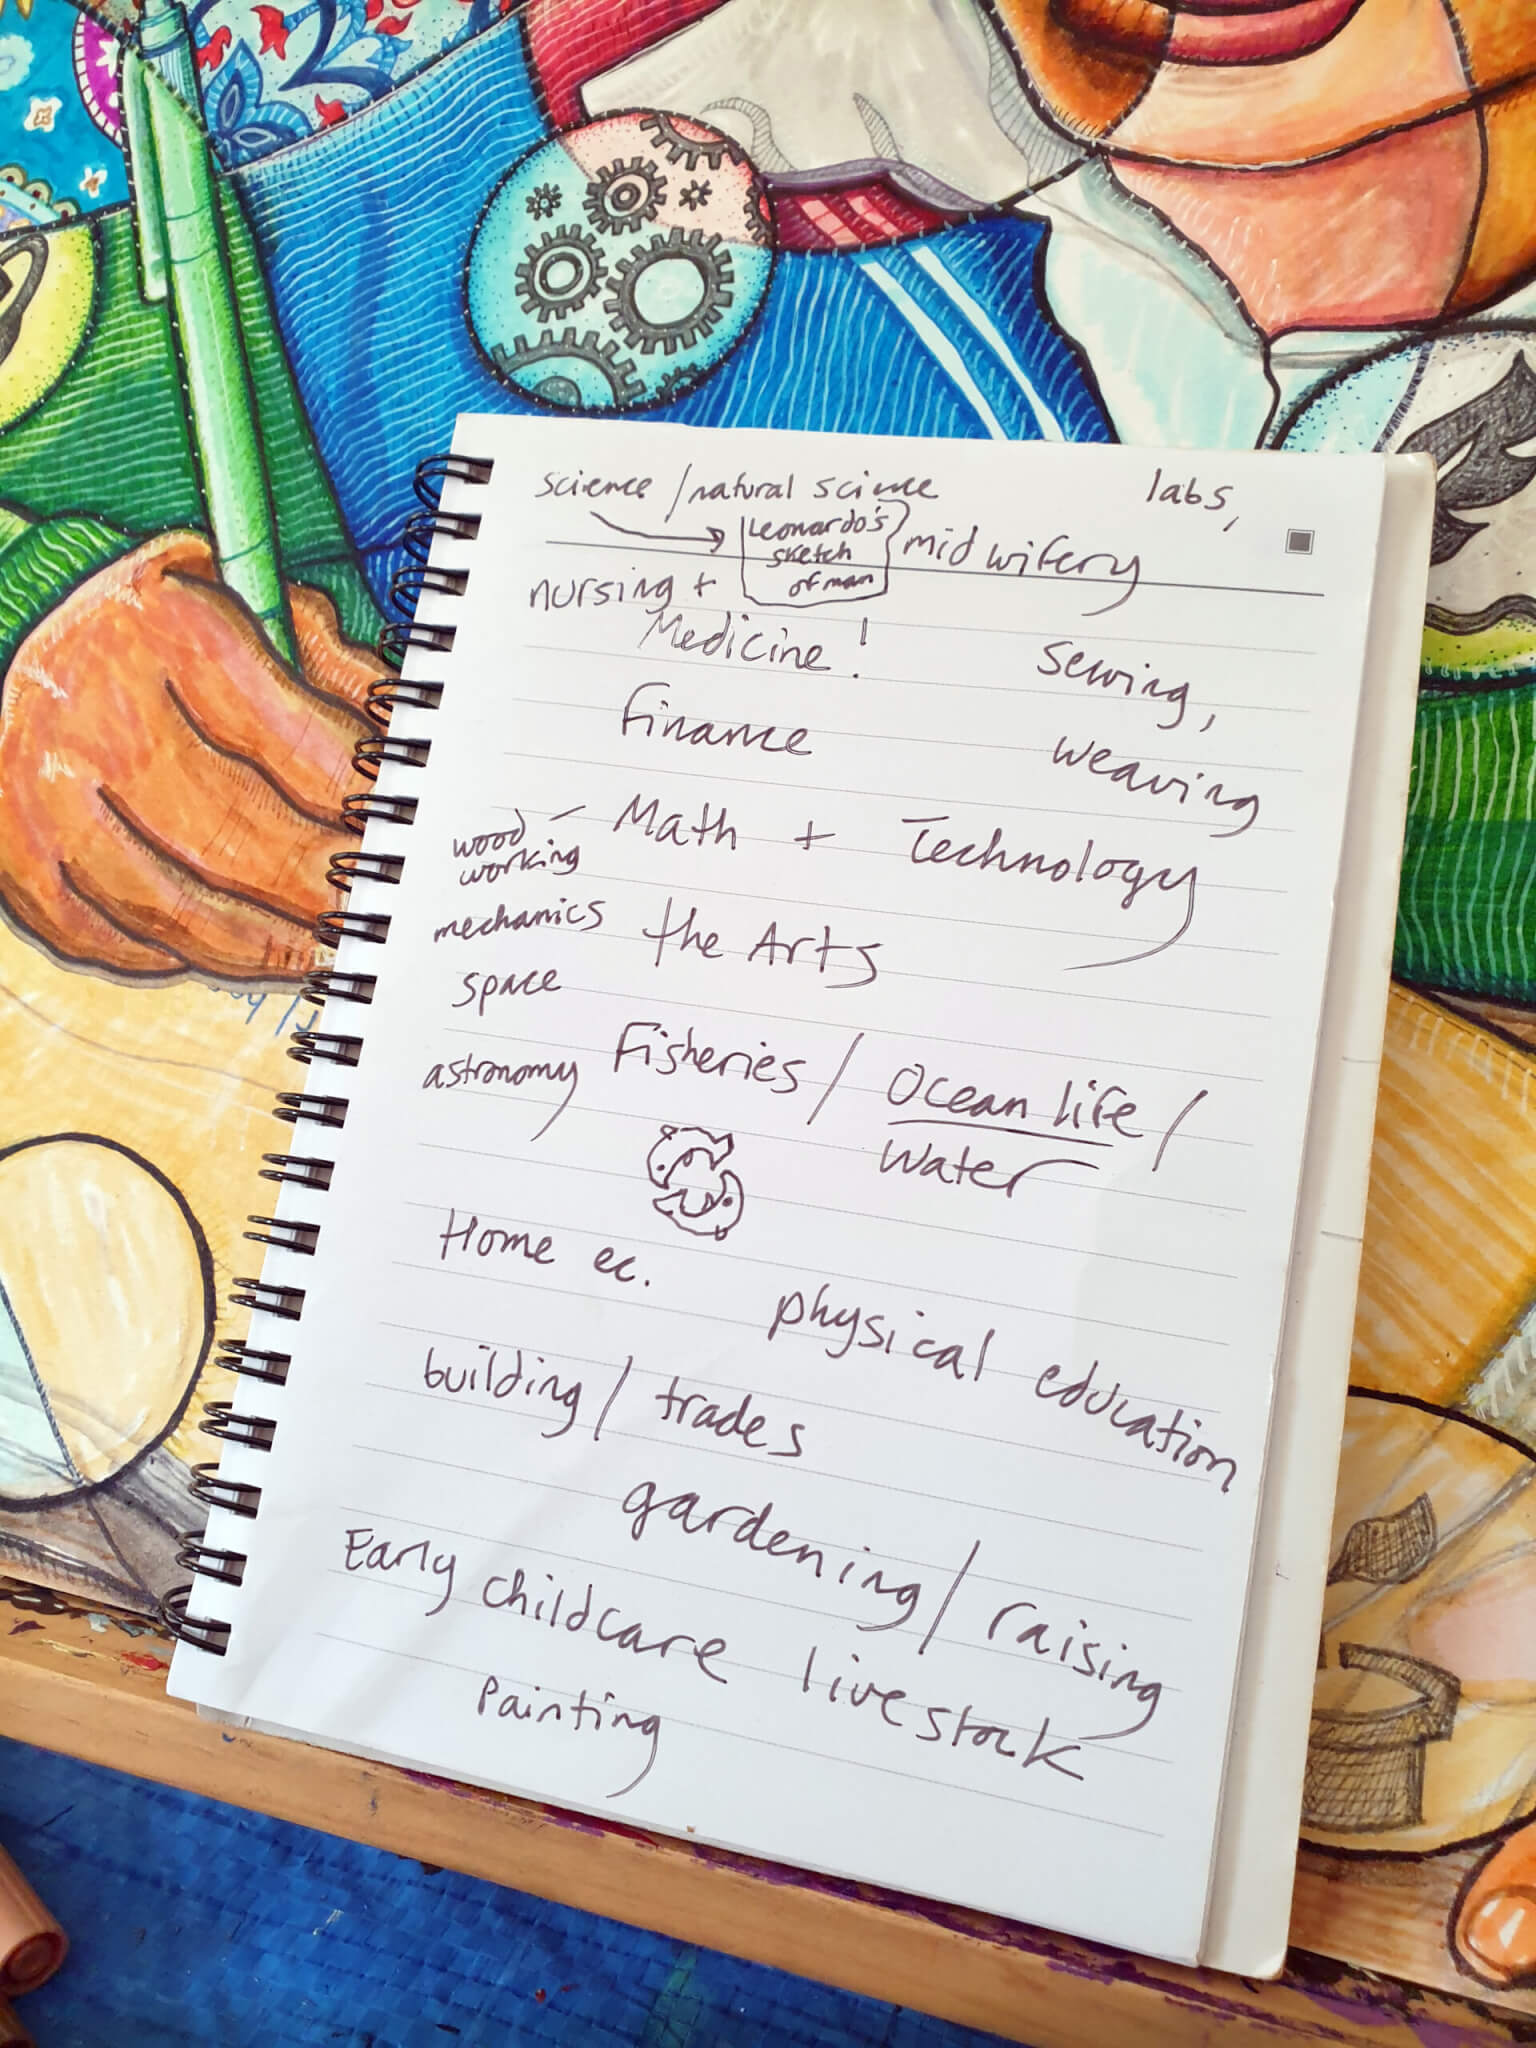 science / natural science labs,
Leonardo's
sketch
of man
midwifery
nursing +
Medicine!
Sewing,
weaving
Finance
Math + Technology
wood
working
mechanics
the Arts
space
astronomy
Fisheries / Ocean life /
Water
Home ec.
physical education
building / trades
gardening / raising
livestock
Early childcare
Painting